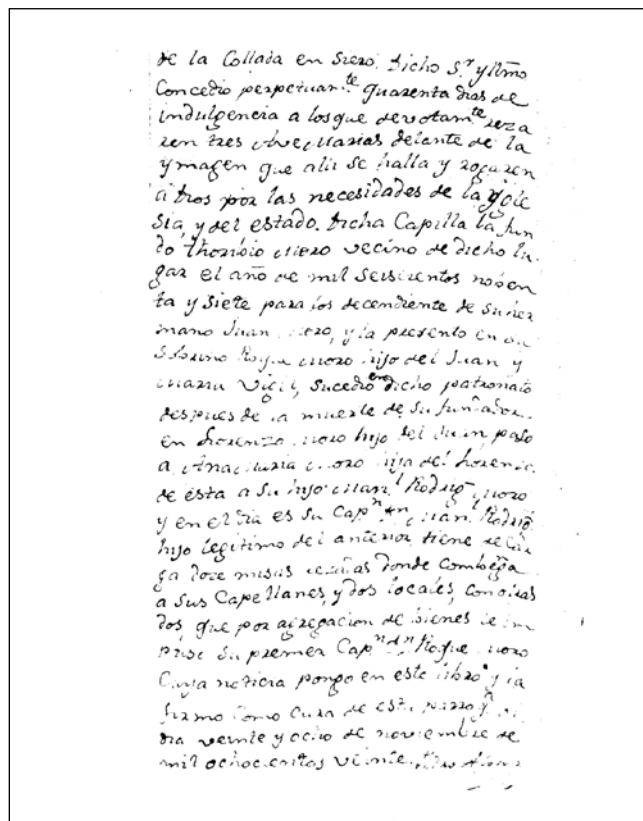 de la Collada en Siero. Dicho S.r y Iltmo
Concedio perpetuam.te quarenta dias de
indulgencia a los que devotam.te reza
ren tres Ave Marias delante de la
Ymagen que alli se halla y rogaren
a Dios por las necesidades de la Ygle
sia, y del estado. Dicha Capilla la fun
do Thoribio Moro vecino de dicho lu
gar el año de mil seiscientos noben
ta y siete para los decendiente de su her
mano Juan Moro, y la presento en su
Sobrino Roque Moro hijo del Juan y
Maria Vigil, sucedio en dicho patronato
despues de la muerte de su fundador
en Lorenzo Moro hijo del Juan paso
a Ana Maria Moro hija del Lorenzo
de esta a su hijo Man.l Rodrig. Moro
y en el dia es su Cap.n D.n Man.l Rodrig.
hijo legitimo del anterior tiene de car
ga doze misas donde Combenga
a sus Capellanes, y dos locales, con otras
dos que por agregacion de bienes le im
puso su premer Cap.n D.n Roque Moro
Cuya noticia pongo en este libro y la
firmo como Cura de esta parroq.a
dia veinte y ocho de noviembre de
mil ochocientos veinte.